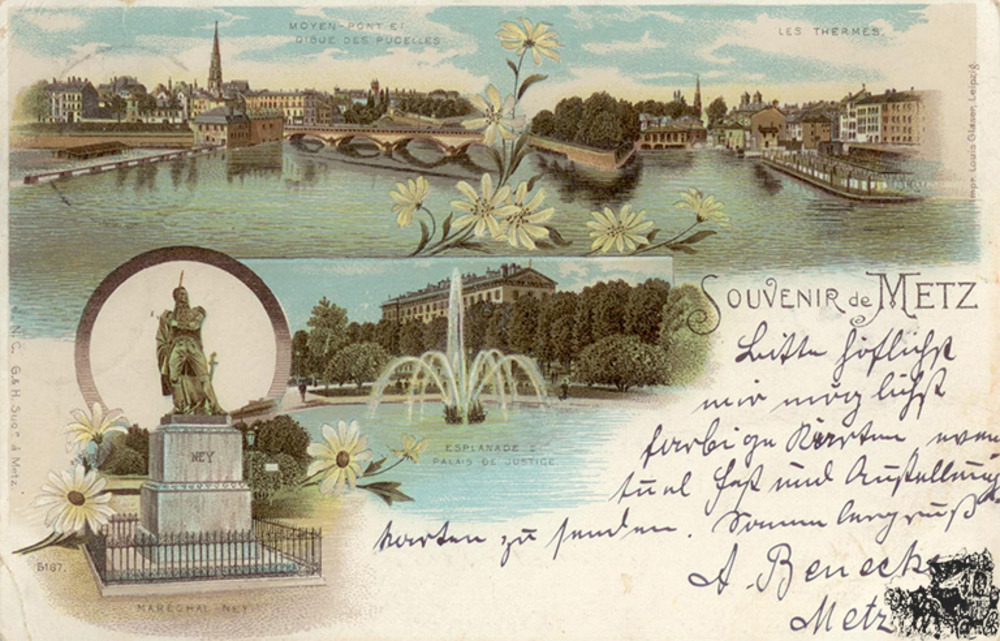 MOYEN-PONT ET
DIGUE DES PUCELLES
LES THERMES.
Impr. Louis Glaser, Leipzig
SOUVENIR de METZ
Bitte höflichst
mir möglichst
farbige Karten even
tuel Fest und Austellungs
karten zu senden. Sammlergruß
A. Benecke
Metz
NEY
ESPLANADE E
PALAIS DE JUSTICE.
N. C. G. & H. Sucr. à Metz.
5167.
MARÉCHAL NEY